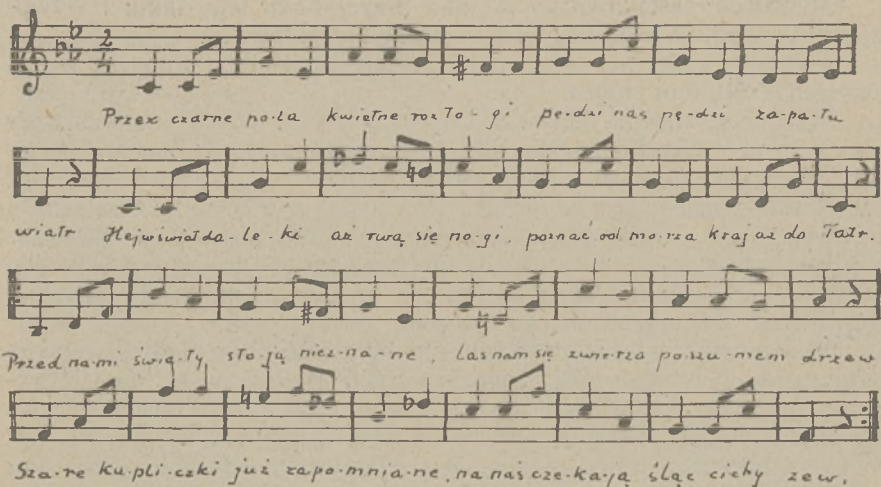 2 4
Przez czarne po-la kwietne roz ło-gi pę-dzi nas pę-dzi za-pa-łu
wiatr Hej w świat da-le-ki aż rwą się no-gi, poznać od mo-rza kraj aż do Tatr.
Przed na-mi świą-ty sto-ją niez-na-ne, las nam się zwie-rza po-szu-mem drzew
Sza-re ka-pli-czki już zapo-mnia-ne, na nas cze-ka-ją śląc cichy zew.